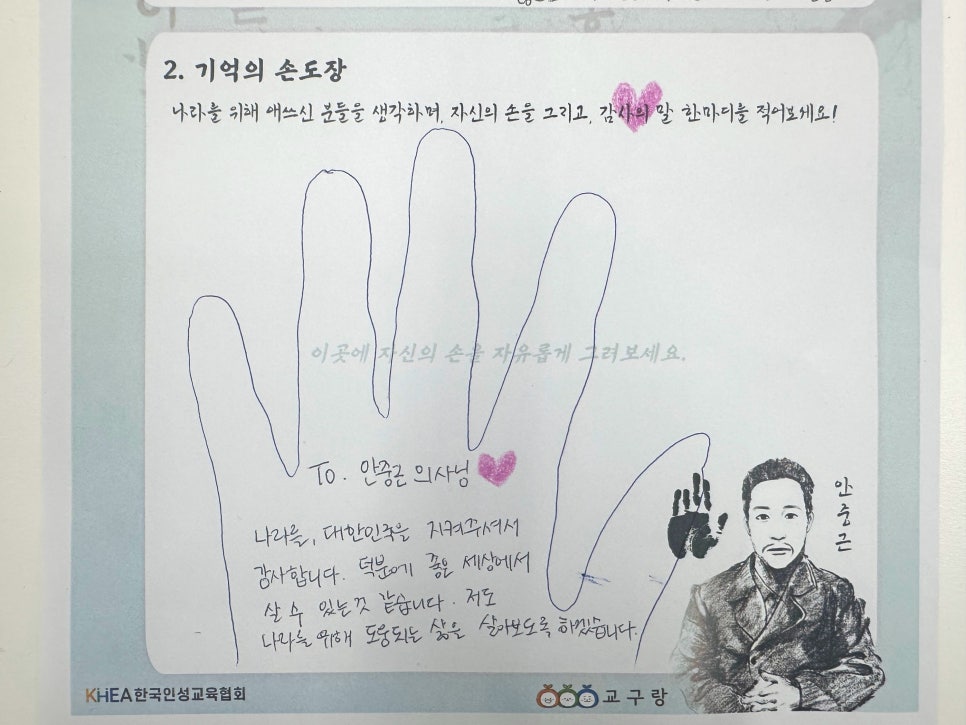 2. 기억의 손도장
나라를 위해 애쓰신 분들을 생각하며, 자신의 손을 그리고, 감사의 말 한마디를 적어보세요!
이곳에 자신의 손을 자유롭게 그려보세요.
To. 안중근 의사님
나라를, 대한민국을 지켜주셔서
감사합니다. 덕분에 좋은 세상에서
살 수 있는것 같습니다. 저도
나라를 위해 도움되는 삶을 살아보도록 하겠습니다.
안중근
KHEA한국인성교육협회
교구랑